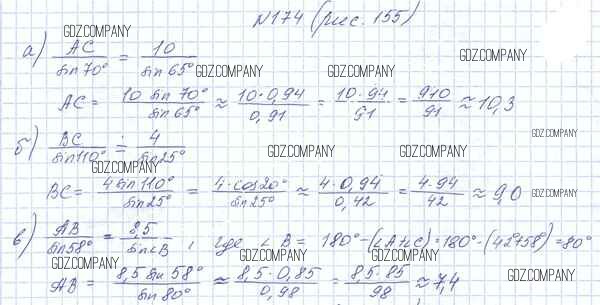 N174 (рис. 155)
GDZ.COMPANY
а) AC / sin 70° = 10 / sin 65°
GDZ.COMPANY GDZ.COMPANY GDZ.COMPANY
AC = 10 sin 70° / sin 65° ≈ 10·0,94 / 0,91 = 10·94 / 91 = 910 / 91 ≈ 10,3
б) BC / sin 110° = 4 / sin 25°
GDZ.COMPANY
GDZ.COMPANY GDZ.COMPANY GDZ.COMPANY
BC = 4 sin 110° / sin 25° = 4·cos 20° / sin 25° ≈ 4·0,94 / 0,42 = 4·94 / 42 ≈ 9,0
GDZ.COMPANY
в) AB / sin 58° = 8,5 / sin ∠B, где ∠B = 180° - (∠A+∠C) = 180° - (42°+58°) = 80°
GDZ.COMPANY GDZ.COMPANY GDZ.COMPANY GDZ.COMPANY
AB = 8,5 sin 58° / sin 80° ≈ 8,5·0,85 / 0,98 = 8,5·85 / 98 ≈ 7,4